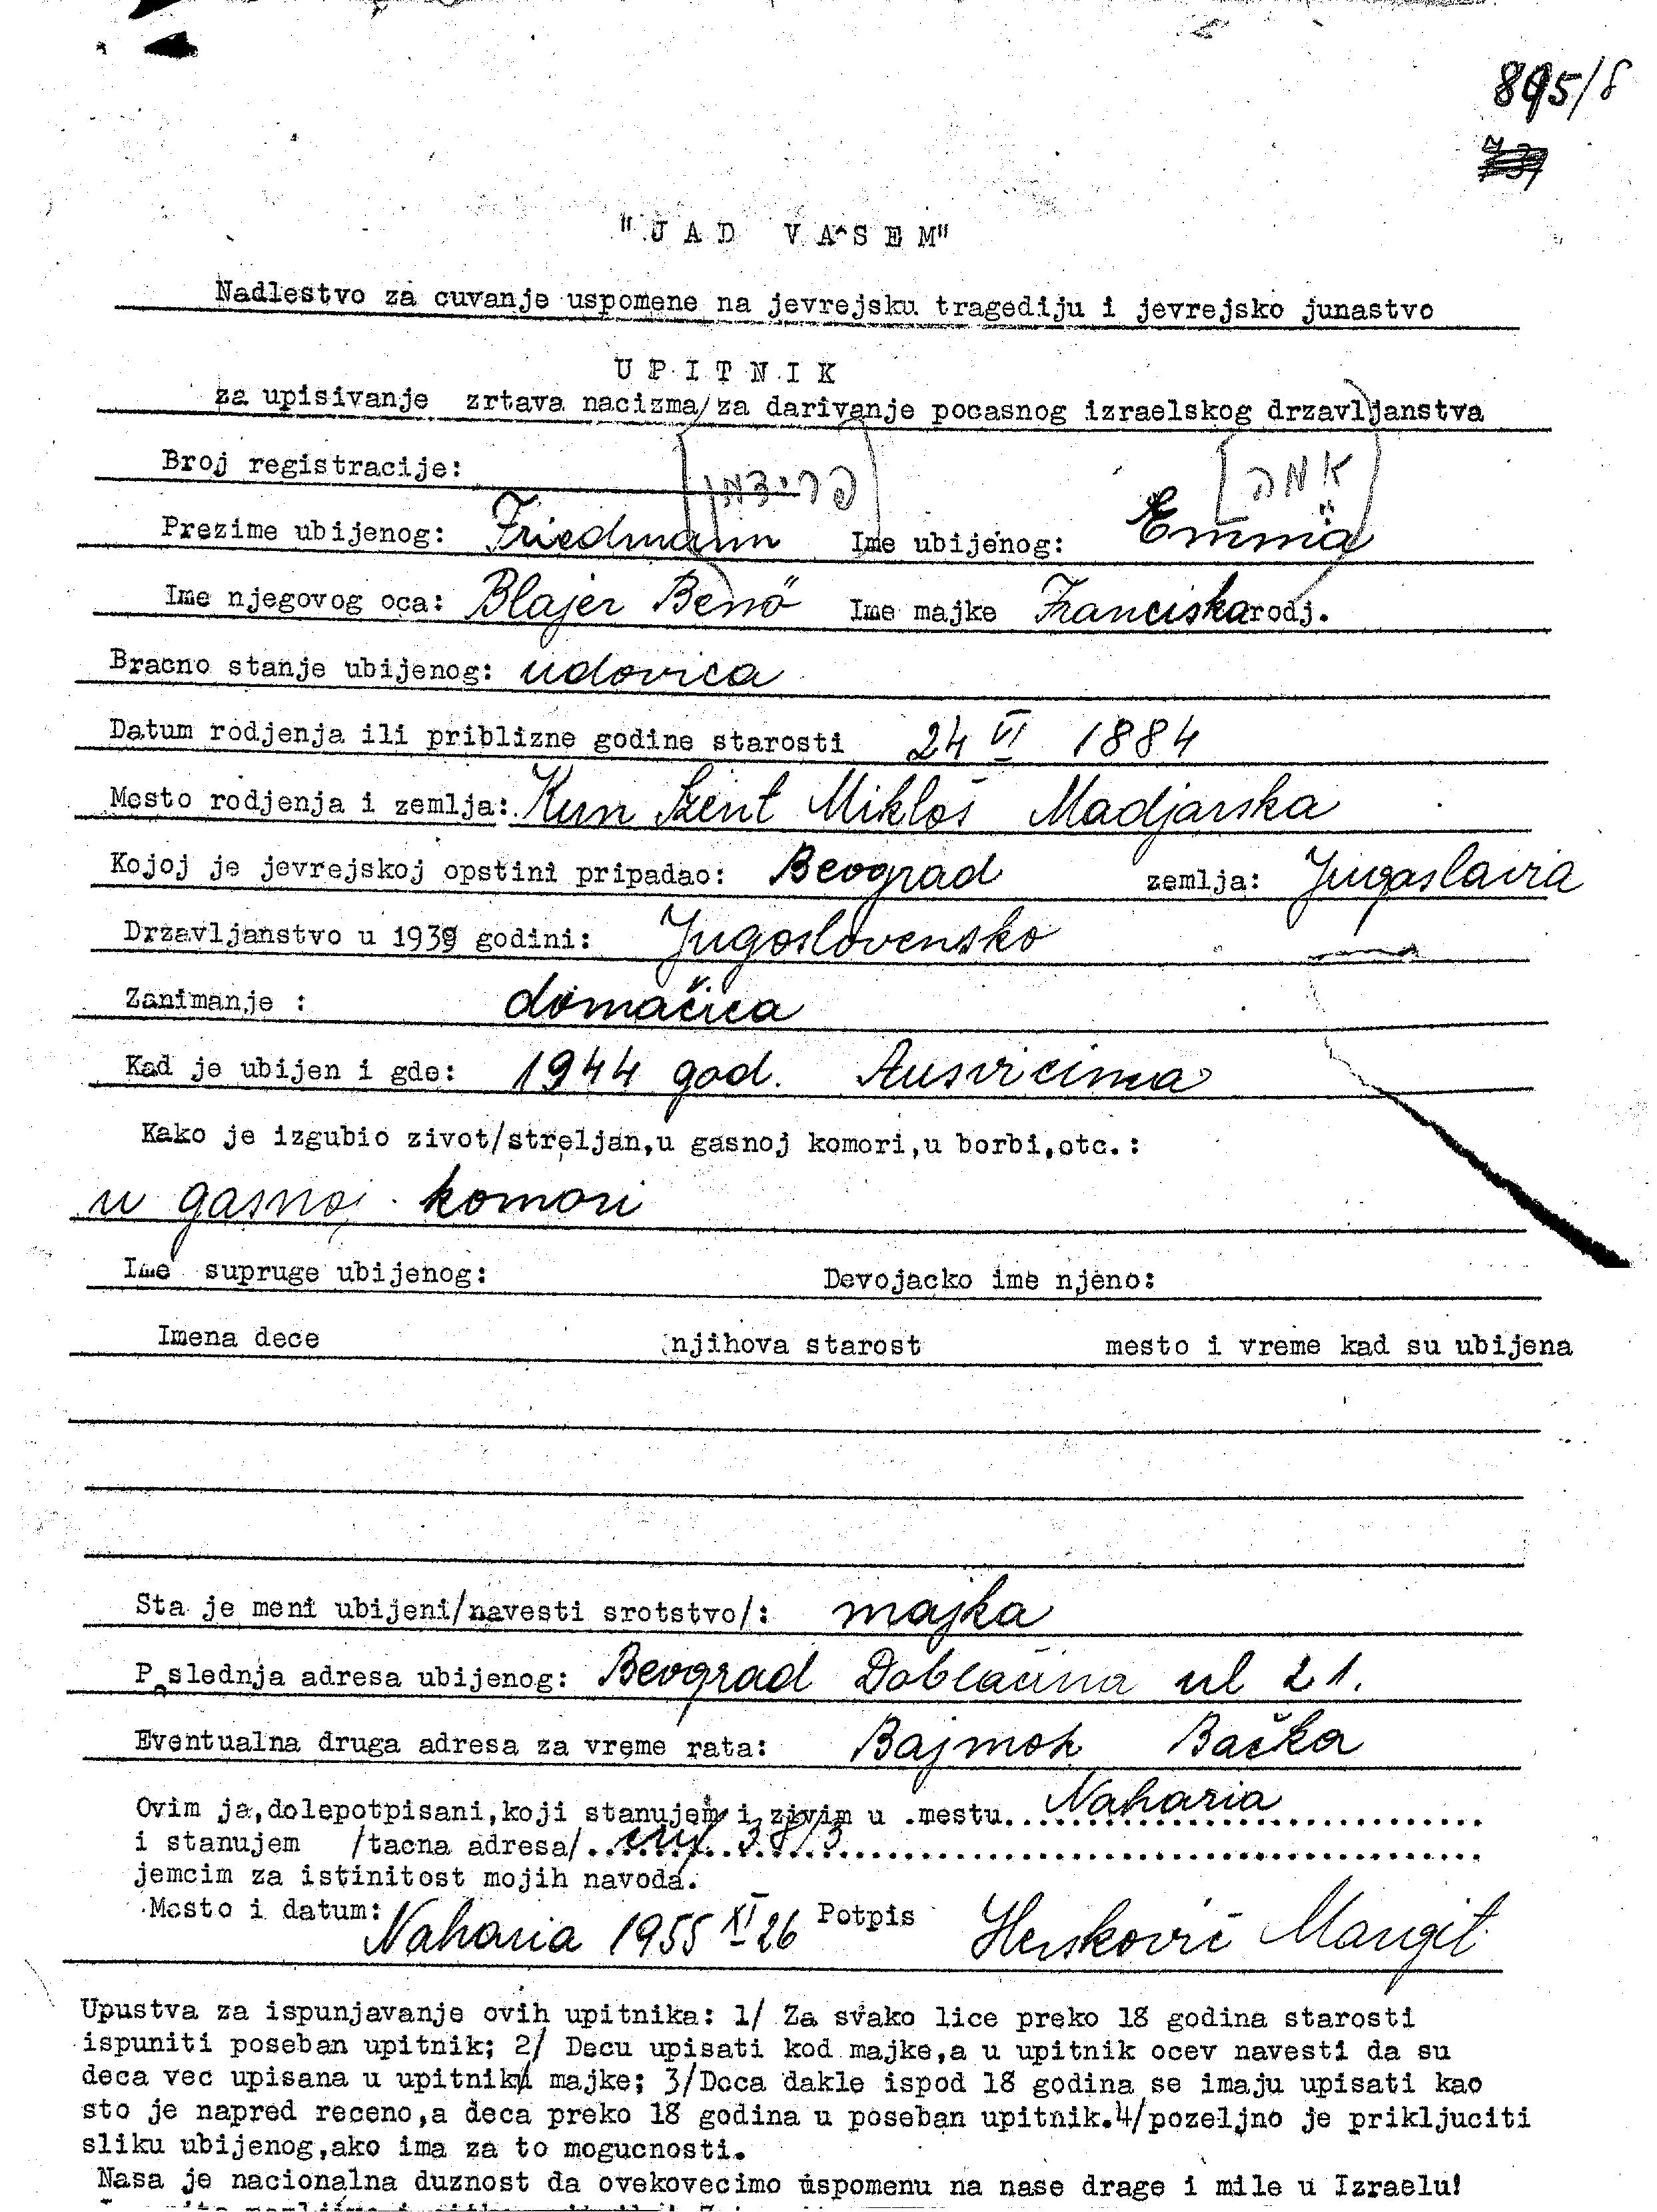 895/8
"JAD VAŠEM"
Nadlestvo za cuvanje uspomene na jevrejsku tragediju i jevrejsko junastvo
UPITNIK
za upisivanje zrtava nacizma/za darivanje pocasnog izraelskog drzavljanstva
Broj registracije: [פרידמן] [אמה]
Prezime ubijenog: Friedmann Ime ubijenog: Emma
Ime njegovog oca: Blajer Benö Ime majke Franciska rodj.
Bracno stanje ubijenog: udovica
Datum rodjenja ili priblizne godine starosti 24 VI 1884
Mesto rodjenja i zemlja: Kun Szent Miklos Madjarska
Kojoj je jevrejskoj opstini pripadao: Beograd zemlja: Jugoslavia
Drzavljanstvo u 1939 godini: Jugoslovensko
Zanimanje : domačica
Kad je ubijen i gde: 1944 god. Ausvicima
Kako je izgubio zivot/streljan,u gasnoj komori,u borbi,otc.:
u gasnoj komori
Ime supruge ubijenog: Devojacko ime njeno:
Imena dece njihova starost mesto i vreme kad su ubijena
Sta je meni ubijeni/navesti srotstvo/: majka
Poslednja adresa ubijenog: Beograd Doblačina ul 21.
Eventualna druga adresa za vreme rata: Bajmok Bačka
Ovim ja,dolepotpisani,koji stanujem i zivim u mestu Naharia
i stanujem /tacna adresa/ 38/3
jemcim za istinitost mojih navoda.
Mesto i datum: Naharia 1955 XI 26 Potpis Herskovič Margit
Upustva za ispunjavanje ovih upitnika: 1/ Za svako lice preko 18 godina starosti
ispuniti poseban upitnik; 2/ Decu upisati kod majke,a u upitnik ocev navesti da su
deca vec upisana u upitniku majke; 3/Doca dakle ispod 18 godina se imaju upisati kao
sto je napred receno,a deca preko 18 godina u poseban upitnik.4/pozeljno je prikljuciti
sliku ubijenog,ako ima za to mogucnosti.
Nasa je nacionalna duznost da ovekovecimo uspomenu na nase drage i mile u Izraelu!